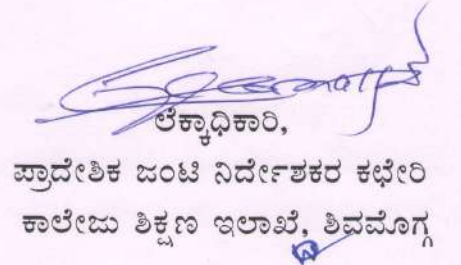 ಲೆಕ್ಕಾಧಿಕಾರಿ,
ಪ್ರಾದೇಶಿಕ ಜಂಟಿ ನಿರ್ದೇಶಕರ ಕಛೇರಿ
ಕಾಲೇಜು ಶಿಕ್ಷಣ ಇಲಾಖೆ, ಶಿವಮೊಗ್ಗ